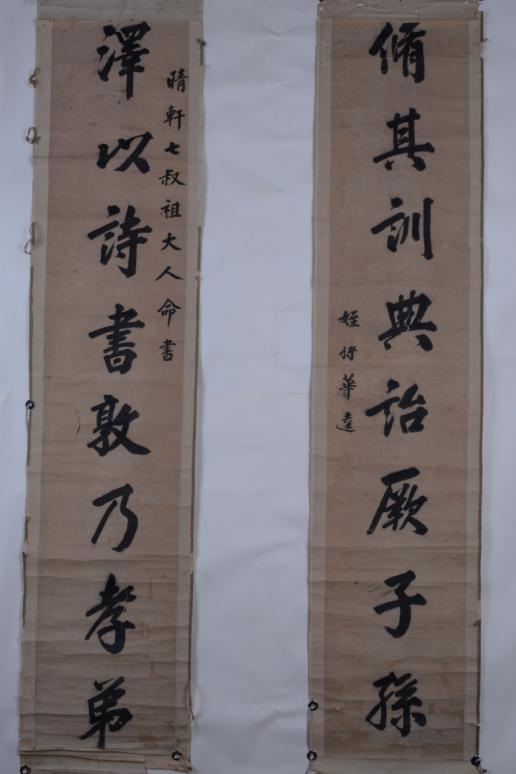 晴軒七叔祖大人命書
澤以詩書敦乃孝弟
脩其訓典詒厥子孫
姪 華達